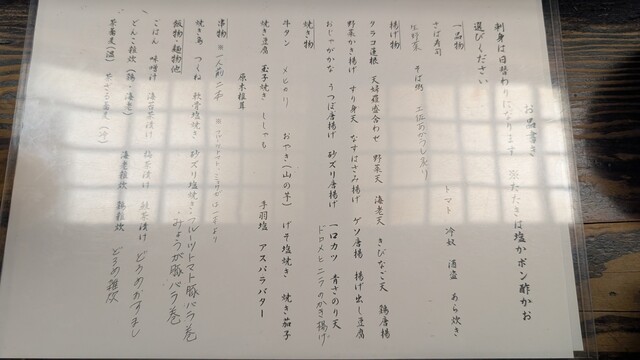 お品書き
刺身は日替わりになります ※たたきは塩かポン酢かお
選びください
一品物
さば寿司 トマト 冷奴 酒盗 あら炊き
生野菜 そば粥 土佐あかうし炙り
揚げ物
タラコ蓮根 天婦羅盛合わせ 野菜天 海老天 きびなご天 鶏唐揚
野菜かき揚げ すり身天 なすはさみ揚げ ゲソ唐揚 揚げ出し豆腐
おじゃがかな うつぼ唐揚げ 砂ズリ唐揚げ 一口カツ 青さのり天
ドロメとニラのかき揚げ
焼き物
牛タン メヒカリ おやき(山の芋) ゲソ塩焼き 焼き茄子
焼き豆腐 玉子焼き ししゃも 手羽塩 アスパラバター
原木椎茸
串物 ※一人前二本
焼き鳥 つくね 軟骨塩焼き 砂ズリ塩焼き フルーツトマト豚バラ巻
みょうが豚バラ巻
飯物・麺物他
ごはん 味噌汁 海苔茶漬け 鮭茶漬け どろめかすまし
どんこ雑炊 (鶏・海老) 海老雑炊 鶏雑炊 どろめ雑炊
茶蕎麦(温) 茶ざる蕎麦(冷)